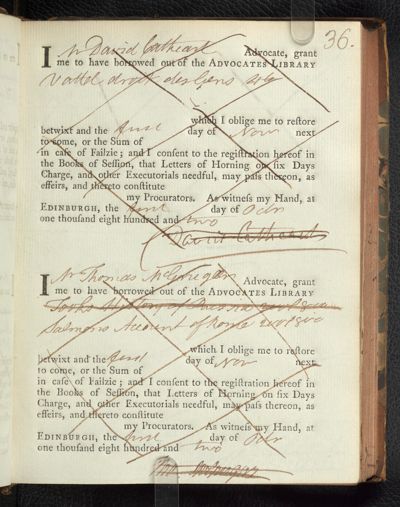 36.
I Mr David Cathcart Advocate, grant
me to have borrowed out of the ADVOCATES LIBRARY
Vattel droit des Gens
which I oblige me to reſtore
betwixt and the first day of Nov next
to come, or the Sum of
in caſe of Failzie; and I conſent to the regiſtration hereof in
the Books of Seſſion, that Letters of Horning on ſix Days
Charge, and other Executorials needful, may paſs thereon, as
effeirs, and thereto conſtitute
my Procurators. As witneſs my Hand, at
EDINBURGH, the first day of Octr
one thouſand eight hundred and two
David Cathcart
I Mr Thomas McGrugar Advocate, grant
me to have borrowed out of the ADVOCATES LIBRARY
Tooke's History of Russia
Salmons Account of
which I oblige me to reſtore
betwixt and the first day of Nov next
to come, or the Sum of
in caſe of Failzie; and I conſent to the regiſtration hereof in
the Books of Seſſion, that Letters of Horning on ſix Days
Charge, and other Executorials needful, may paſs thereon, as
effeirs, and thereto conſtitute
my Procurators. As witneſs my Hand, at
EDINBURGH, the first day of Octr
one thouſand eight hundred and two